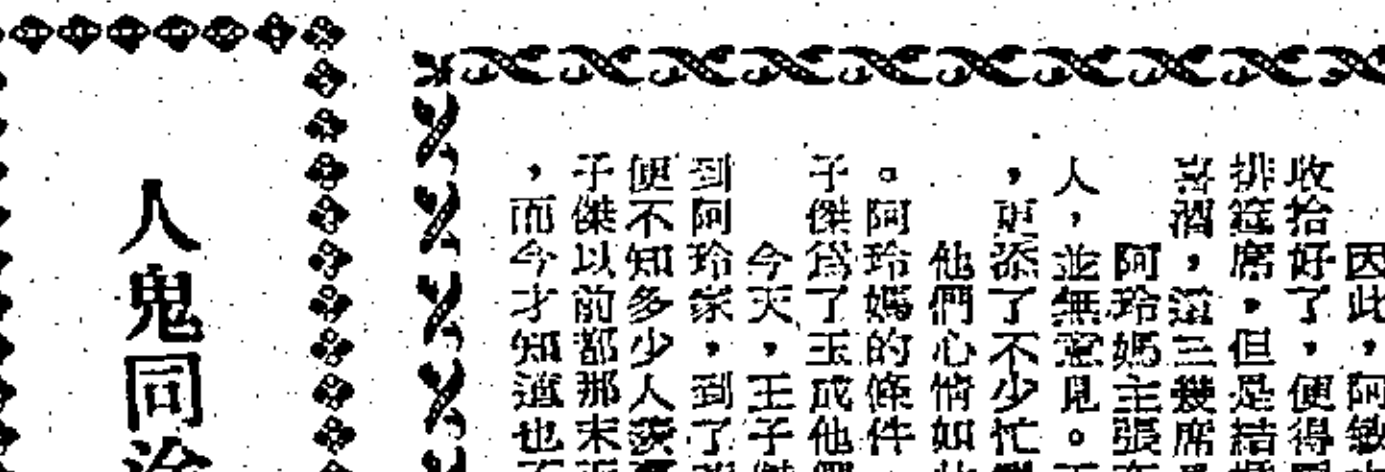 因此，阿敏
收拾好了，便得
排筵席，但是結
喜酒，這三幾席
阿玲媽主張
人，並無意見。
，更添了不少忙
他們心情如此
。阿玲媽的條件
子傑爲了玉成他們
今天，王子傑
到阿玲家，到了
便不知多少人羨
子傑以前都那末
，而今才知道也
人鬼同